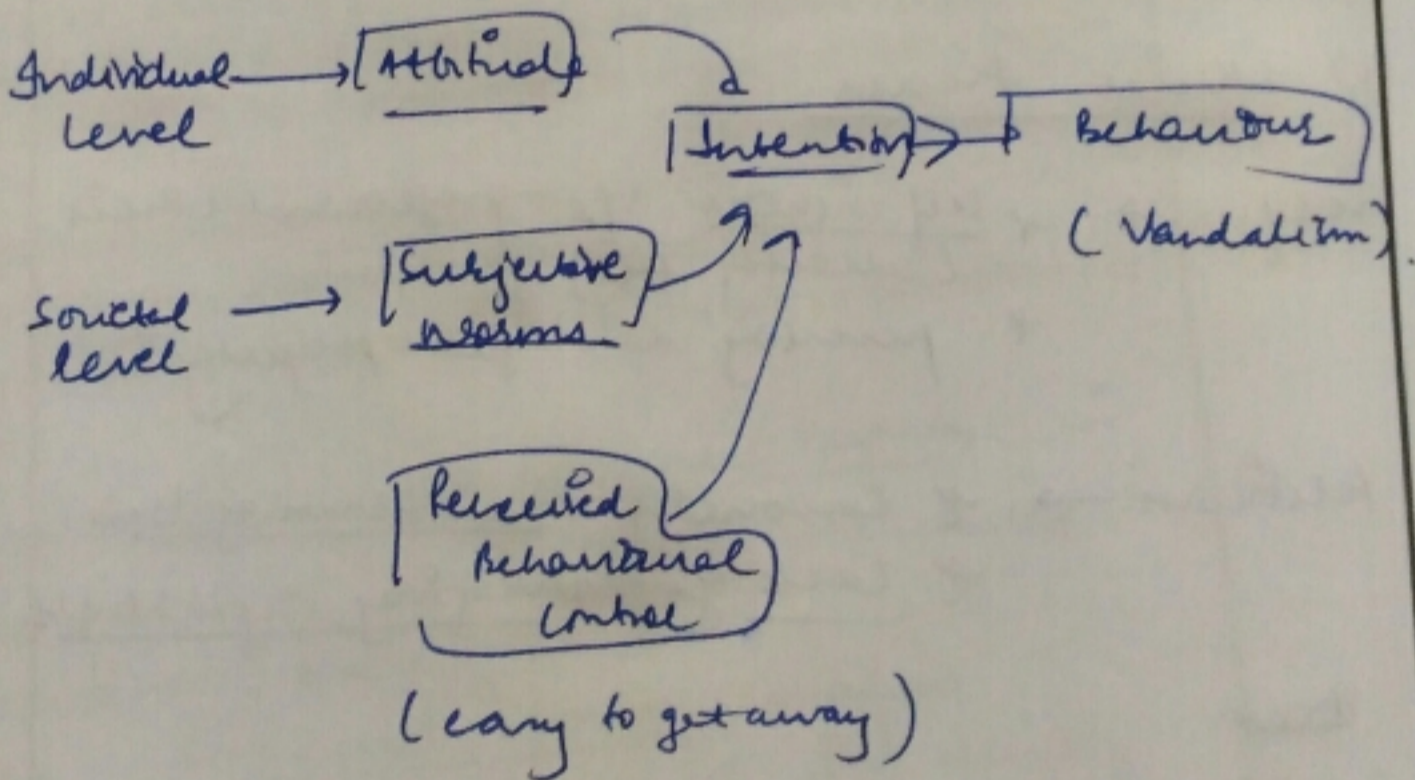 Individual level
Attitude
Intention
Behaviour
(Vandalism)
Societal level
Subjective norms
Perceived
Behavioural
Control
(easy to get away)